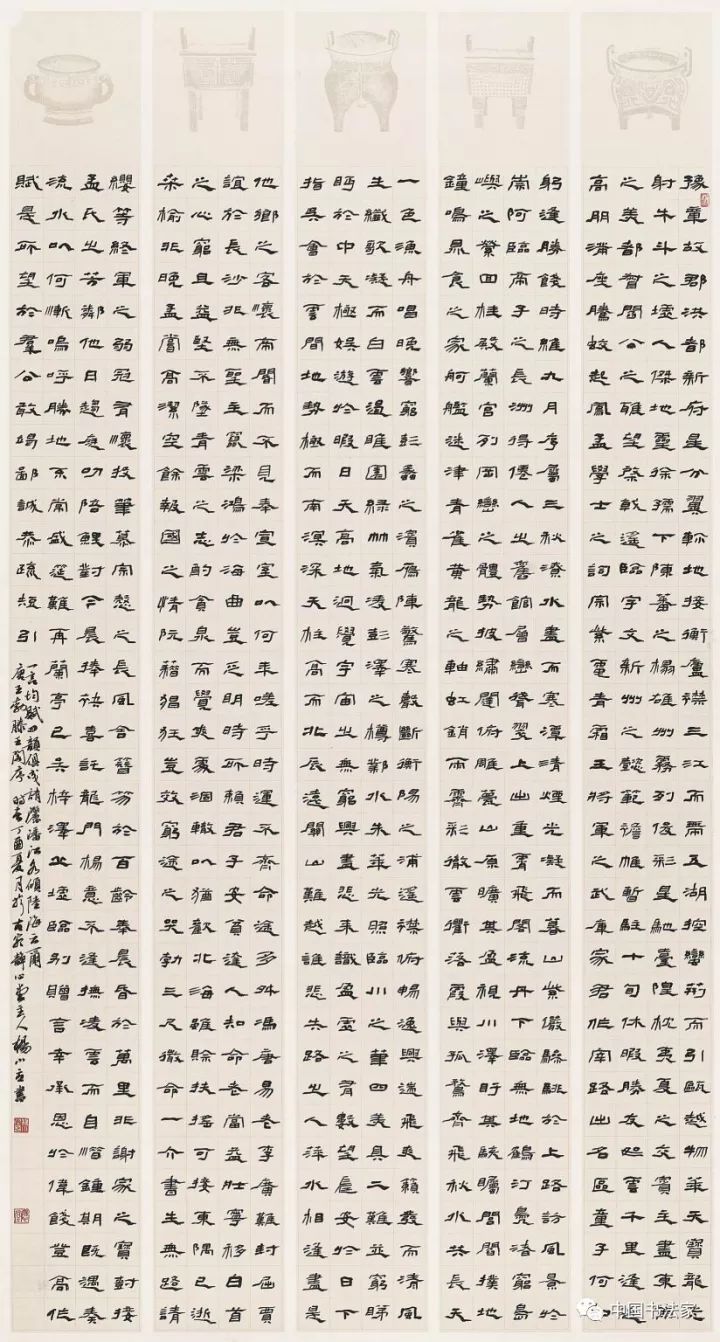 豫章故郡洪都新府星分翼軫地接衡廬襟三江而帶五湖控蠻荊而引甌越物華天寶龍光
射牛斗之墟人傑地靈徐孺下陳蕃之榻雄州霧列俊彩星馳臺隍枕夷夏之交賓主盡東南
之美都督閻公之雅望棨戟遙臨宇文新州之懿範襜帷暫駐十旬休暇勝友如雲千里逢迎
高朋滿座騰蛟起鳳孟學士之詞宗紫電青霜王將軍之武庫家君作宰路出名區童子何知
躬逢勝餞時維九月序屬三秋潦水盡而寒潭清煙光凝而暮山紫儼驂騑於上路訪風景於
崇阿臨帝子之長洲得僊人之舊館層巒聳翠上出重霄飛閣流丹下臨無地鶴汀鳧渚窮島
嶼之縈回桂殿蘭宮列岡巒之體勢披繡闥俯雕甍山原曠其盈視川澤盱其駭矚閭閻撲地
鐘鳴鼎食之家舸艦迷津青雀黃龍之軸虹銷雨霽彩徹雲衢落霞與孤鶩齊飛秋水共長天
一色漁舟唱晚響窮彭蠡之濱雁陣驚寒聲斷衡陽之浦遙襟俯暢逸興遄飛爽籟發而清風
生纖歌凝而白雲遏睢園綠竹氣凌彭澤之樽鄴水朱華光照臨川之筆四美具二難並窮睇
眄於中天極娛遊於暇日天高地迥覺宇宙之無窮興盡悲來識盈虛之有數望長安於日下
指吳會於雲間地勢極而南溟深天柱高而北辰遠關山難越誰悲失路之人萍水相逢盡是
他鄉之客懷帝閽而不見奉宣室以何年嗟乎時運不齊命途多舛馮唐易老李廣難封屈賈
誼於長沙非無聖主竄梁鴻於海曲豈乏明時所賴君子安貧達人知命老當益壯寧移白首
之心窮且益堅不墜青雲之志酌貪泉而覺爽處涸轍以猶歡北海雖賒扶搖可接東隅已逝
桑榆非晚孟嘗高潔空餘報國之情阮籍猖狂豈效窮途之哭勃三尺微命一介書生無路請
纓等終軍之弱冠有懷投筆慕宗愨之長風舍簪笏於百齡奉晨昏於萬里非謝家之寶樹接
孟氏之芳鄰他日趨庭叨陪鯉對今晨捧袂喜託龍門楊意不逢撫凌雲而自惜鍾期既遇奏
流水以何慚嗚呼勝地不常盛筵難再蘭亭已矣梓澤丘墟臨別贈言幸承恩於偉餞登高作
賦是所望於羣公敢竭鄙誠恭疏短引
一言均賦四韻俱成請灑潘江各傾陸海云爾
唐王勃滕王閣序時在丁酉夏月於古宛靜心堂主人楊小立書
中国书法家